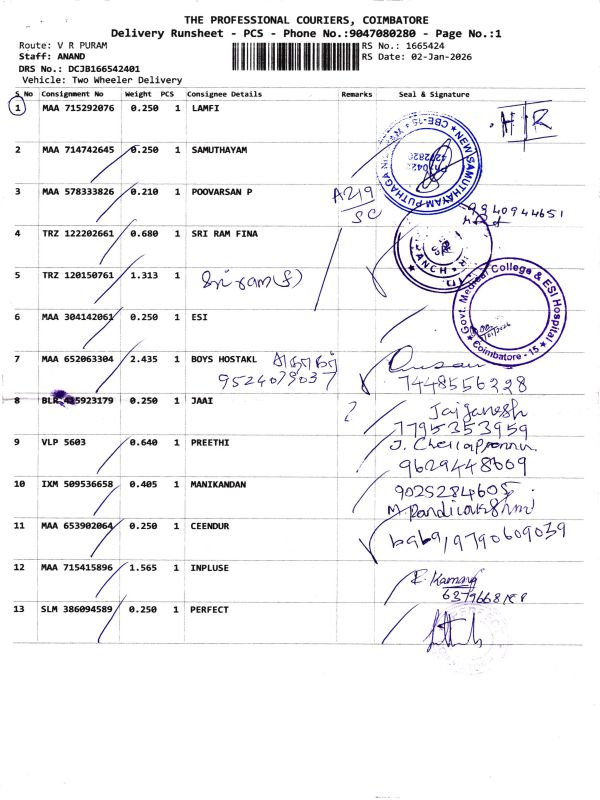 THE PROFESSIONAL COURIERS, COIMBATORE
Delivery Runsheet - PCS - Phone No.:9047080280 - Page No.:1
Route: V R PURAM RS No.: 1665424
Staff: ANAND RS Date: 02-Jan-2026
DRS No.: DCJB166542401
Vehicle: Two Wheeler Delivery
S No Consignment No Weight PCS Consignee Details Remarks Seal & Signature
1 MAA 715292076 0.250 1 LAMFI
2 MAA 714742645 0.250 1 SAMUTHAYAM
3 MAA 578333826 0.210 1 POOVARSAN P A219
SC
9940944651
4 TRZ 122202661 0.680 1 SRI RAM FINA
5 TRZ 120150761 1.313 1 Sri ram (f)
Govt. Medical College & ESI Hospital
Coimbatore - 15
6 MAA 304142061 0.250 1 ESI
7 MAA 652063304 2.435 1 BOYS HOSTAKL
9524079037
7448556228
8 BLR 415923179 0.250 1 JAAI ? Jaiganesh
7795353959
9 VLP 5603 0.640 1 PREETHI
9629448609
10 IXM 509536658 0.405 1 MANIKANDAN 9025284605
11 MAA 653902064 0.250 1 CEENDUR 9790609039
12 MAA 715415896 1.565 1 INPLUSE
13 SLM 386094589 0.250 1 PERFECT